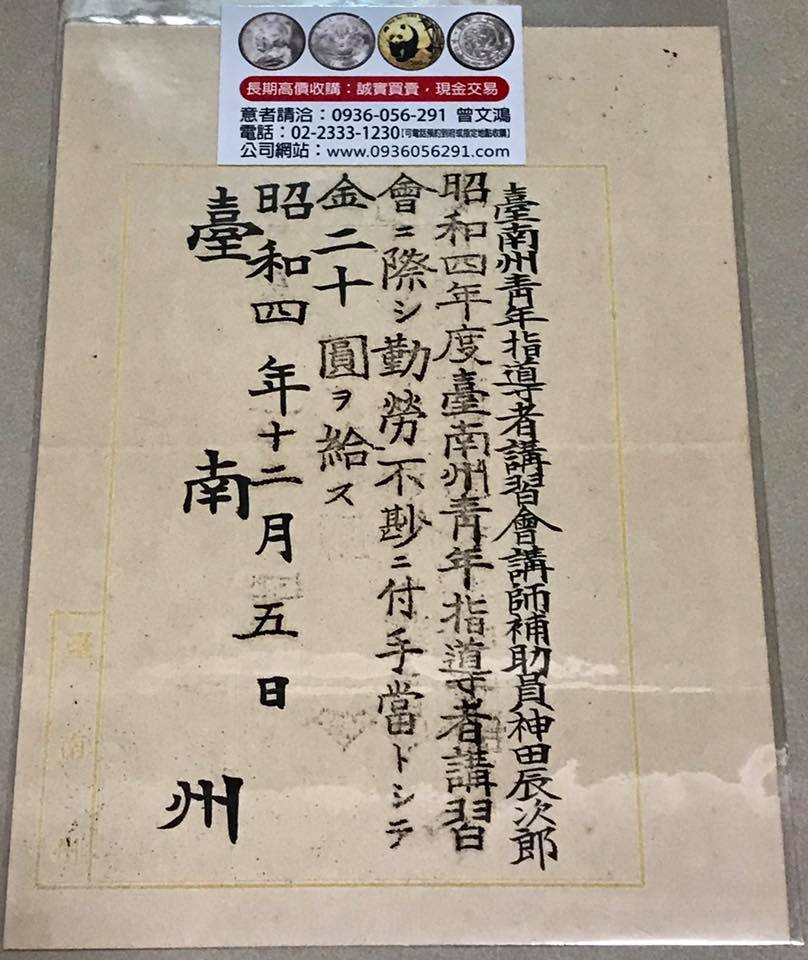 長期高價收購：誠實買賣，現金交易
意者請洽：0936-056-291 曾文鴻
電話：02-2333-1230【可電話預約到府或指定地點收購】
公司網站：www.0936056291.com
臺南州靑年指導者講習會講師補助員神田辰次郎
昭和四年度臺南州靑年指導者講習
會ニ際シ勤勞不尠ニ付手當トシテ
金二十圓ヲ給ス
昭和四年十二月五日
臺南州
臺南州